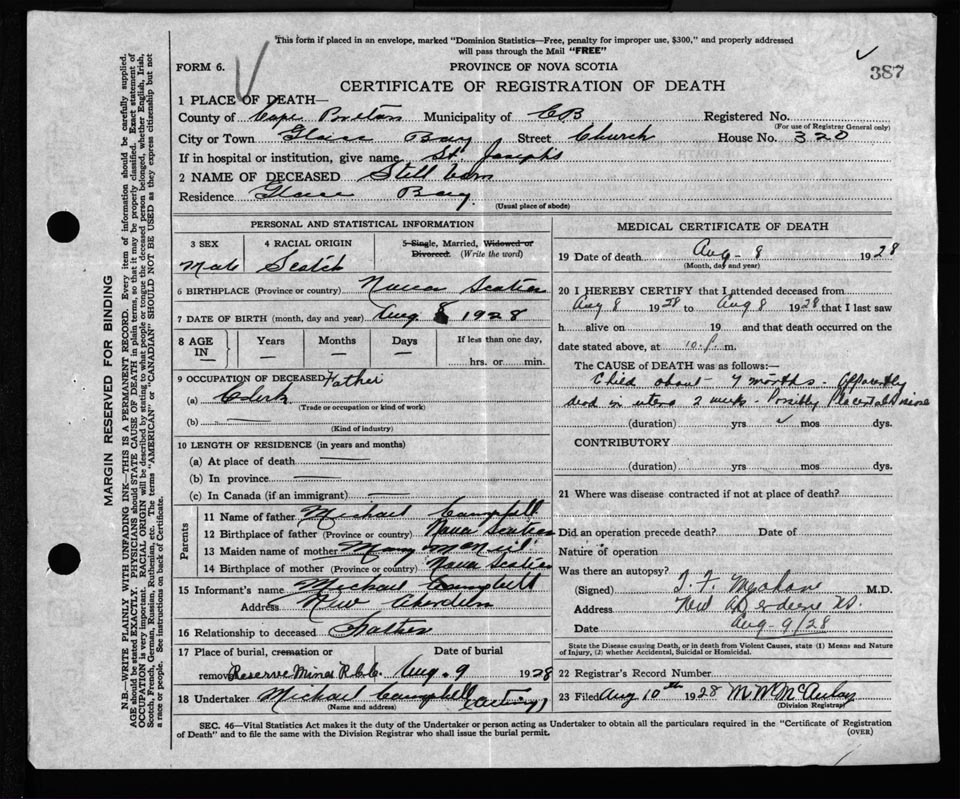 This form if placed in an envelope, marked "Dominion Statistics—Free, penalty for improper use, $300," and properly addressed
will pass through the Mail "FREE"
FORM 6.
PROVINCE OF NOVA SCOTIA
387
CERTIFICATE OF REGISTRATION OF DEATH
1 PLACE OF DEATH—
County of Cape Breton Municipality of CB Registered No.
(For use of Registrar General only)
City or Town Glace Bay Street Church House No. 320
If in hospital or institution, give name St. Joseph's
2 NAME OF DECEASED Still born
Residence Glace Bay
(Usual place of abode)
PERSONAL AND STATISTICAL INFORMATION
3 SEX 4 RACIAL ORIGIN 5 Single, Married, Widowed or Divorced. (Write the word)
Male Scotch
6 BIRTHPLACE (Province or country) Nova Scotia
7 DATE OF BIRTH (month, day and year) Aug 8 1928
8 AGE IN Years Months Days If less than one day,
— — — — hrs. or min.
9 OCCUPATION OF DECEASED Father
(a) Clerk
(Trade or occupation or kind of work)
(b)
(Kind of industry)
10 LENGTH OF RESIDENCE (in years and months)
(a) At place of death
(b) In province
(c) In Canada (if an immigrant)
Parents
11 Name of father Michael Campbell
12 Birthplace of father (Province or country) Nova Scotia
13 Maiden name of mother Mary McNeil
14 Birthplace of mother (Province or country) Nova Scotia
15 Informant's name Michael Campbell
Address New Aberdeen
16 Relationship to deceased Father
17 Place of burial, cremation or Date of burial
removal Reserve Mines R.C.C. Aug. 9 1928
18 Undertaker Michael Campbell (acting)
(Name and address)
MEDICAL CERTIFICATE OF DEATH
19 Date of death Aug - 8 1928
(Month, day and year)
20 I HEREBY CERTIFY that I attended deceased from
Aug 8 1928 to Aug 8 1928 that I last saw
h alive on 19 and that death occurred on the
date stated above, at 10. P. m.
The CAUSE OF DEATH was as follows:—
Child about 7 months. Apparently
dead in utero 2 weeks - Possibly Placental
(duration) yrs mos dys.
CONTRIBUTORY
(duration) yrs mos dys.
21 Where was disease contracted if not at place of death?
Did an operation precede death? Date of
Nature of operation
Was there an autopsy?
(Signed) M.D.
Address New Aberdeen NS.
Date Aug - 9/28
State the Disease causing Death, or in death from Violent Causes, state (1) Means and Nature
of Injury, (2) whether Accidental, Suicidal or Homicidal.
22 Registrar's Record Number
23 Filed Aug 10th 1928 M W McAulay
(Division Registrar)
SEC. 46—Vital Statistics Act makes it the duty of the Undertaker or person acting as Undertaker to obtain all the particulars required in the "Certificate of Registration
of Death" and to file the same with the Division Registrar who shall issue the burial permit.
(OVER)
MARGIN RESERVED FOR BINDING
N.B—WRITE PLAINLY WITH UNFADING INK—THIS IS A PERMANENT RECORD. Every item of information should be carefully supplied.
AGE should be stated EXACTLY. PHYSICIANS should STATE CAUSE OF DEATH in plain terms, so that it may be properly classified. Exact statement of
OCCUPATION is very important. RACIAL ORIGIN will be described by stating to what people or tongue the deceased person belonged, whether English, Irish,
Scotch, French, German, Russian, Ruthenian, etc. The terms "AMERICAN" or "CANADIAN" SHOULD NOT BE USED as they express citizenship but not
a race or people. See instructions on back of Certificate.